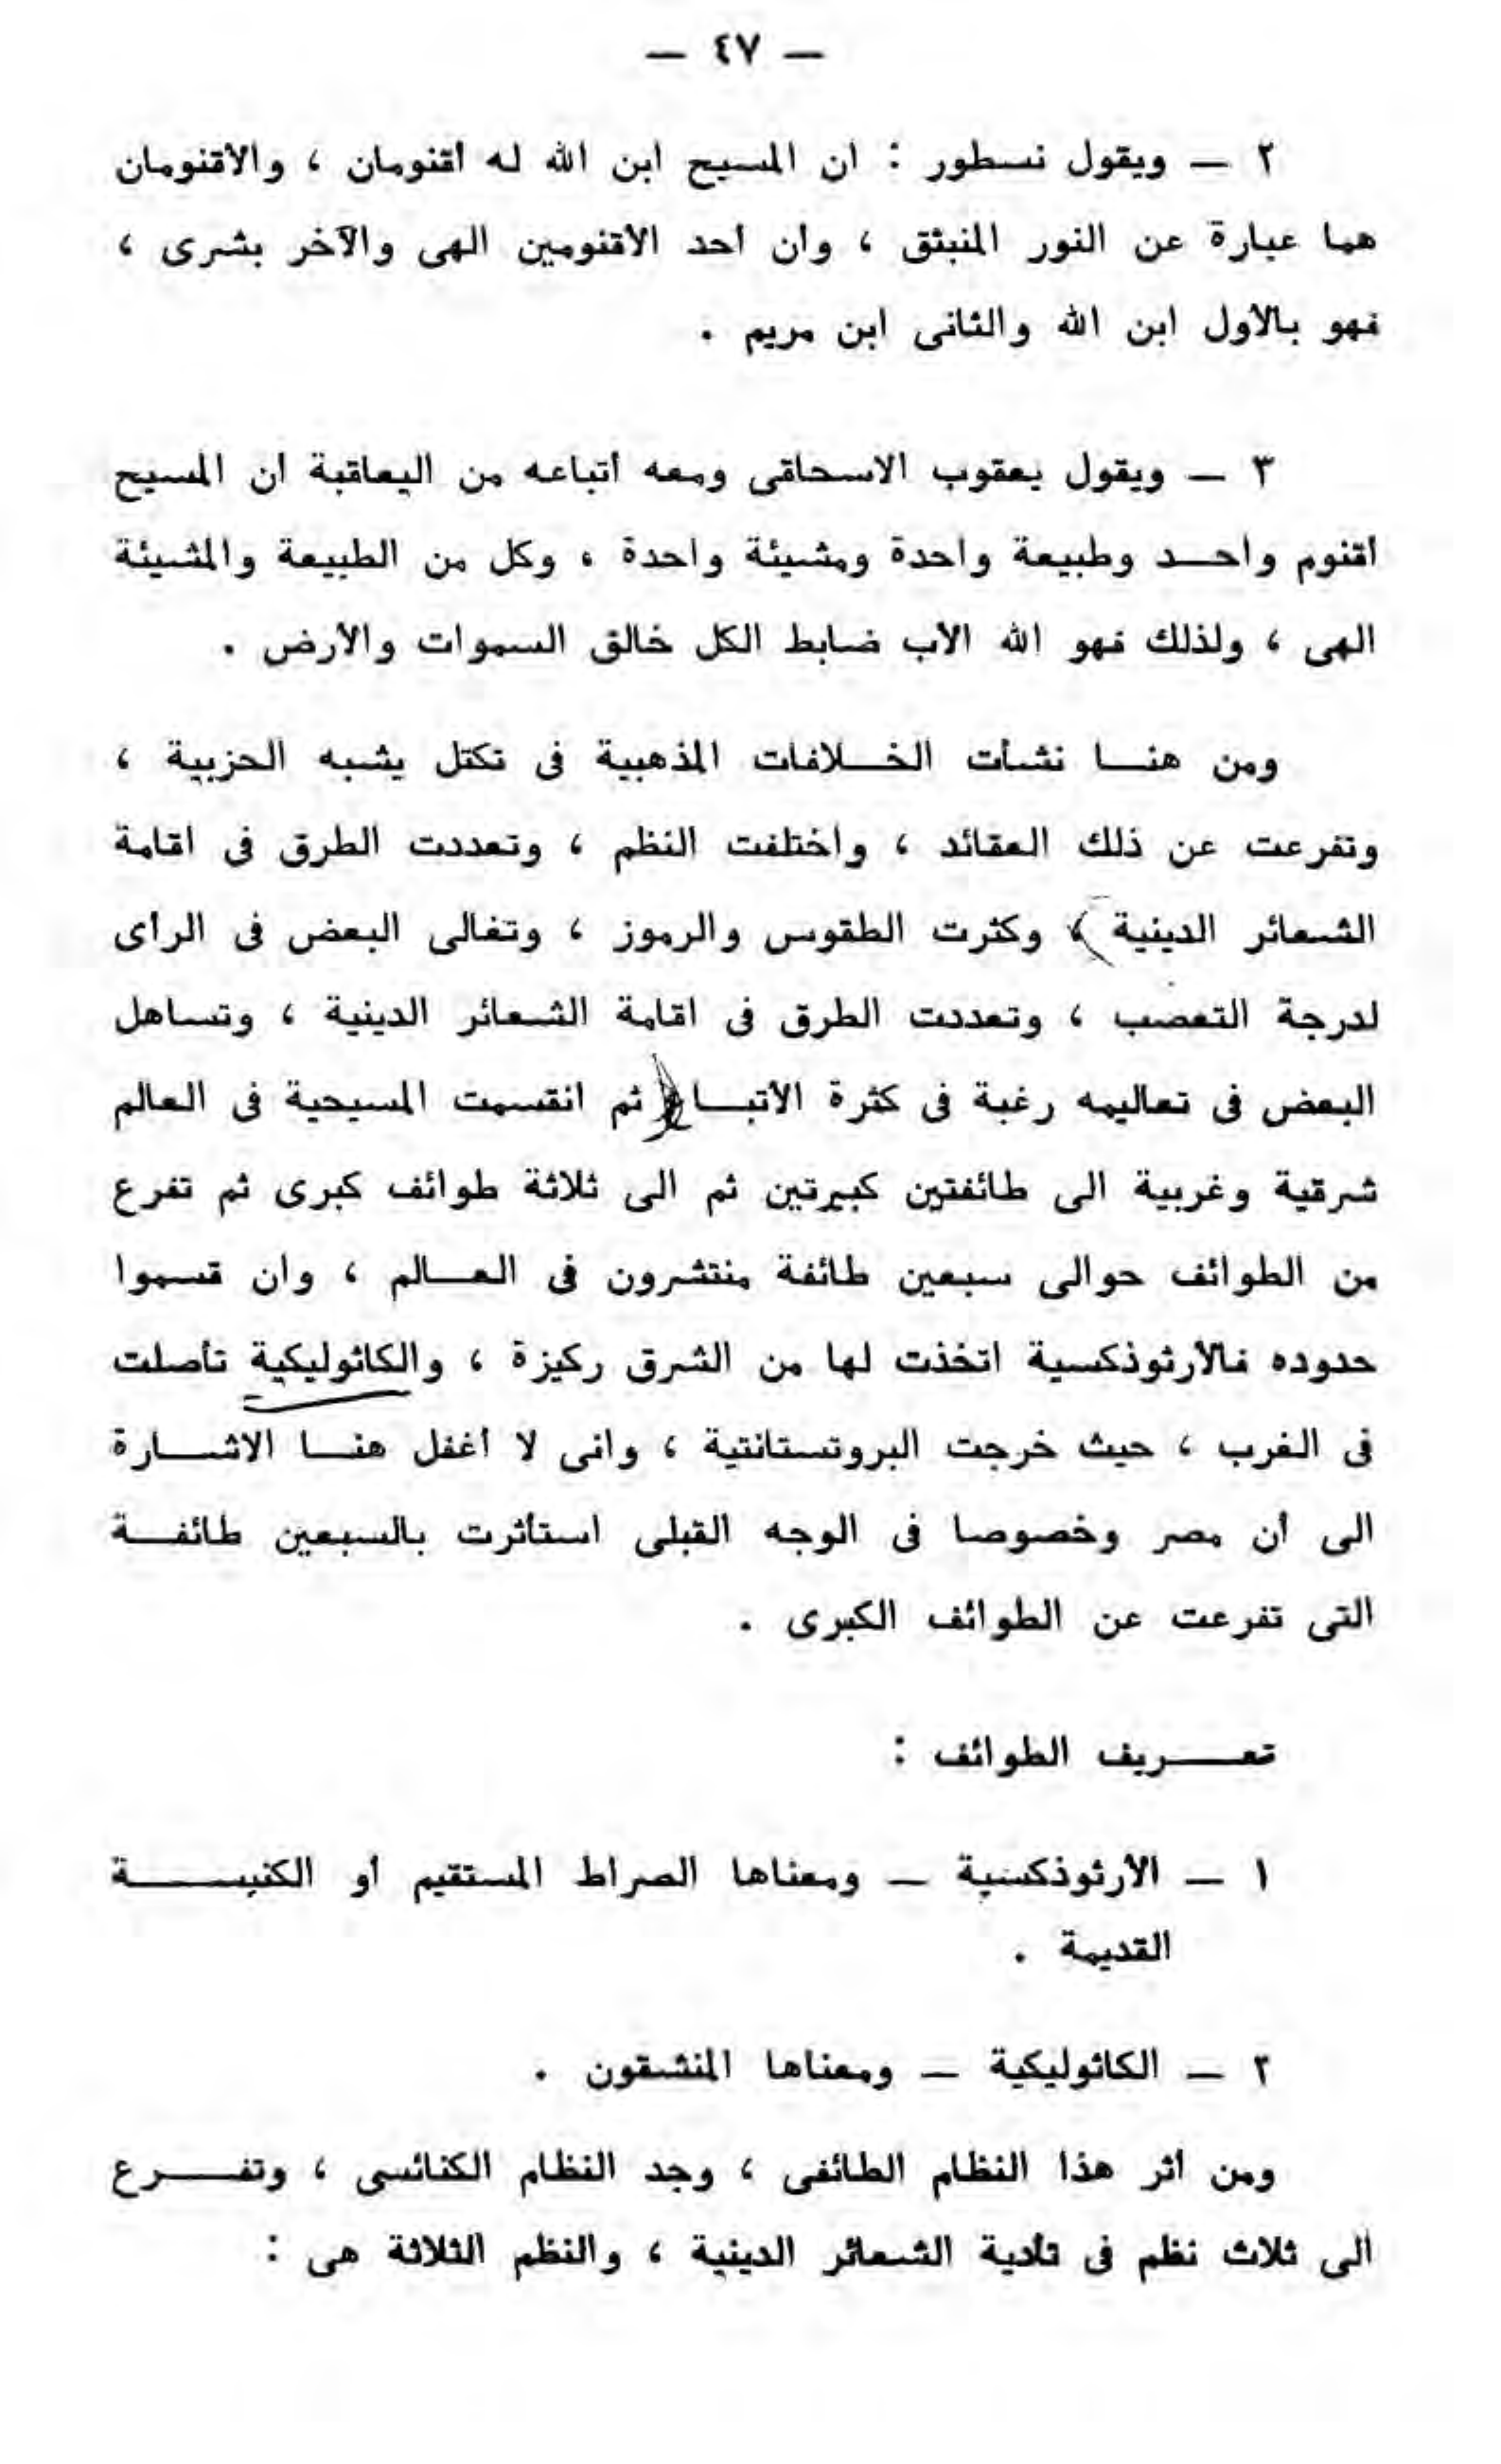 — ٤٧ —
٢ — ويقول نسطور : ان المسيح ابن الله له أقنومان ، والأقنومان
هما عبارة عن النور المنبثق ، وأن أحد الأقنومين الهى والآخر بشرى ،
فهو بالأول ابن الله والثانى ابن مريم .
٣ — ويقول يعقوب الاسحاقى ومعه أتباعه من اليعاقبة أن المسيح
أقنوم واحد وطبيعة واحدة ومشيئة واحدة ، وكل من الطبيعة والمشيئة
الهى ، ولذلك فهو الله الأب ضابط الكل خالق السموات والأرض .
ومن هنا نشأت الخلافات المذهبية فى تكتل يشبه الحزبية ،
وتفرعت عن ذلك العقائد ، واختلفت النظم ، وتعددت الطرق فى اقامة
الشعائر الدينية ، وكثرت الطقوس والرموز ، وتغالى البعض فى الرأى
لدرجة التعصب ، وتعددت الطرق فى اقامة الشعائر الدينية ، وتساهل
البعض فى تعاليمه رغبة فى كثرة الأتباع ثم انقسمت المسيحية فى العالم
شرقية وغربية الى طائفتين كبيرتين ثم الى ثلاثة طوائف كبرى ثم تفرع
من الطوائف حوالى سبعين طائفة منتشرون فى العالم ، وان قسموا
حدوده فالأرثوذكسية اتخذت لها من الشرق ركيزة ، والكاثوليكية تأصلت
فى الغرب ، حيث خرجت البروتستانتية ، وانى لا أغفل هنا الاشارة
الى أن مصر وخصوصا فى الوجه القبلى استأثرت بالسبعين طائفة
التى تفرعت عن الطوائف الكبرى .
تعريف الطوائف :
١ — الأرثوذكسية — ومعناها الصراط المستقيم أو الكنيسة
القديمة .
٢ — الكاثوليكية — ومعناها المنشقون .
ومن أثر هذا النظام الطائفى ، وجد النظام الكنائسى ، وتفرع
الى ثلاث نظم فى تأدية الشعائر الدينية ، والنظم الثلاثة هى :